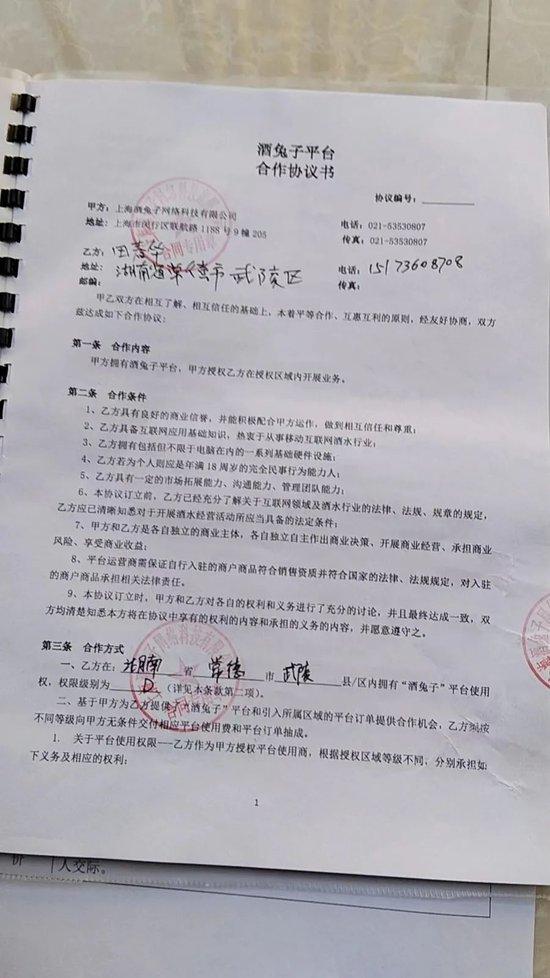 酒兔子平台
合作协议书
协议编号：
甲方：上海酒兔子网络科技有限公司
地址：上海市闵行区联航路 1188 号 9 幢 205
电话：021-53530807
传真：021-53530807
乙方：田芳华
地址：湖南省常德市武陵区
邮编：
电话：15173608708
传真：
甲乙双方在相互了解、相互信任的基础上，本着平等合作、互惠互利的原则，经友好协商，双方
兹达成如下合作协议：
第一条 合作内容
甲方拥有酒兔子平台，甲方授权乙方在授权区域内开展业务。
第二条 合作条件
1、乙方具有良好的商业信誉，并能积极配合甲方运作，做到相互信任和尊重；
2、乙方具备互联网应用基础知识，热衷于从事移动互联网酒水行业；
3、乙方拥有包括但不限于电脑在内的一系列基础硬件设施；
4、乙方若为个人则应是年满 18 周岁的完全民事行为能力人；
5、乙方具有一定的市场拓展能力、沟通能力、管理团队能力；
6、本协议订立前，乙方已经充分了解关于互联网领域及酒水行业的法律、法规、规章的规定，
乙方应已清晰知悉对于开展酒水经营活动所应当具备的法定条件；
7、甲方和乙方是各自独立的商业主体，各自独立自主作出商业决策、开展商业经营、承担商业
风险、享受商业收益；
8、平台运营商需保证自行入驻的商户商品符合销售资质并符合国家的法律、法规规定，对入驻
的商户商品承担相关法律责任。
9、本协议订立时，甲方和乙方对各自的权利和义务进行了充分的讨论，并且最终达成一致，双
方均清楚知悉本方将在协议中享有的权利的内容和承担的义务的内容，并愿意遵守之。
第三条 合作方式
一、乙方在：湖南省常德市武陵县/区内拥有“酒兔子”平台使用
权，权限级别为 D （详见本条款第二项）。
二、基于甲方为乙方提供“酒兔子”平台和引入所属区域的平台订单提供合作机会，乙方须按
不同等级向甲方无条件交付相应平台使用费和平台订单抽成。
1. 关于平台使用权限---乙方作为甲方授权平台使用商，根据授权区域等级不同，分别承担如
下义务及相应的权利：
1
人交际。
合同专用章